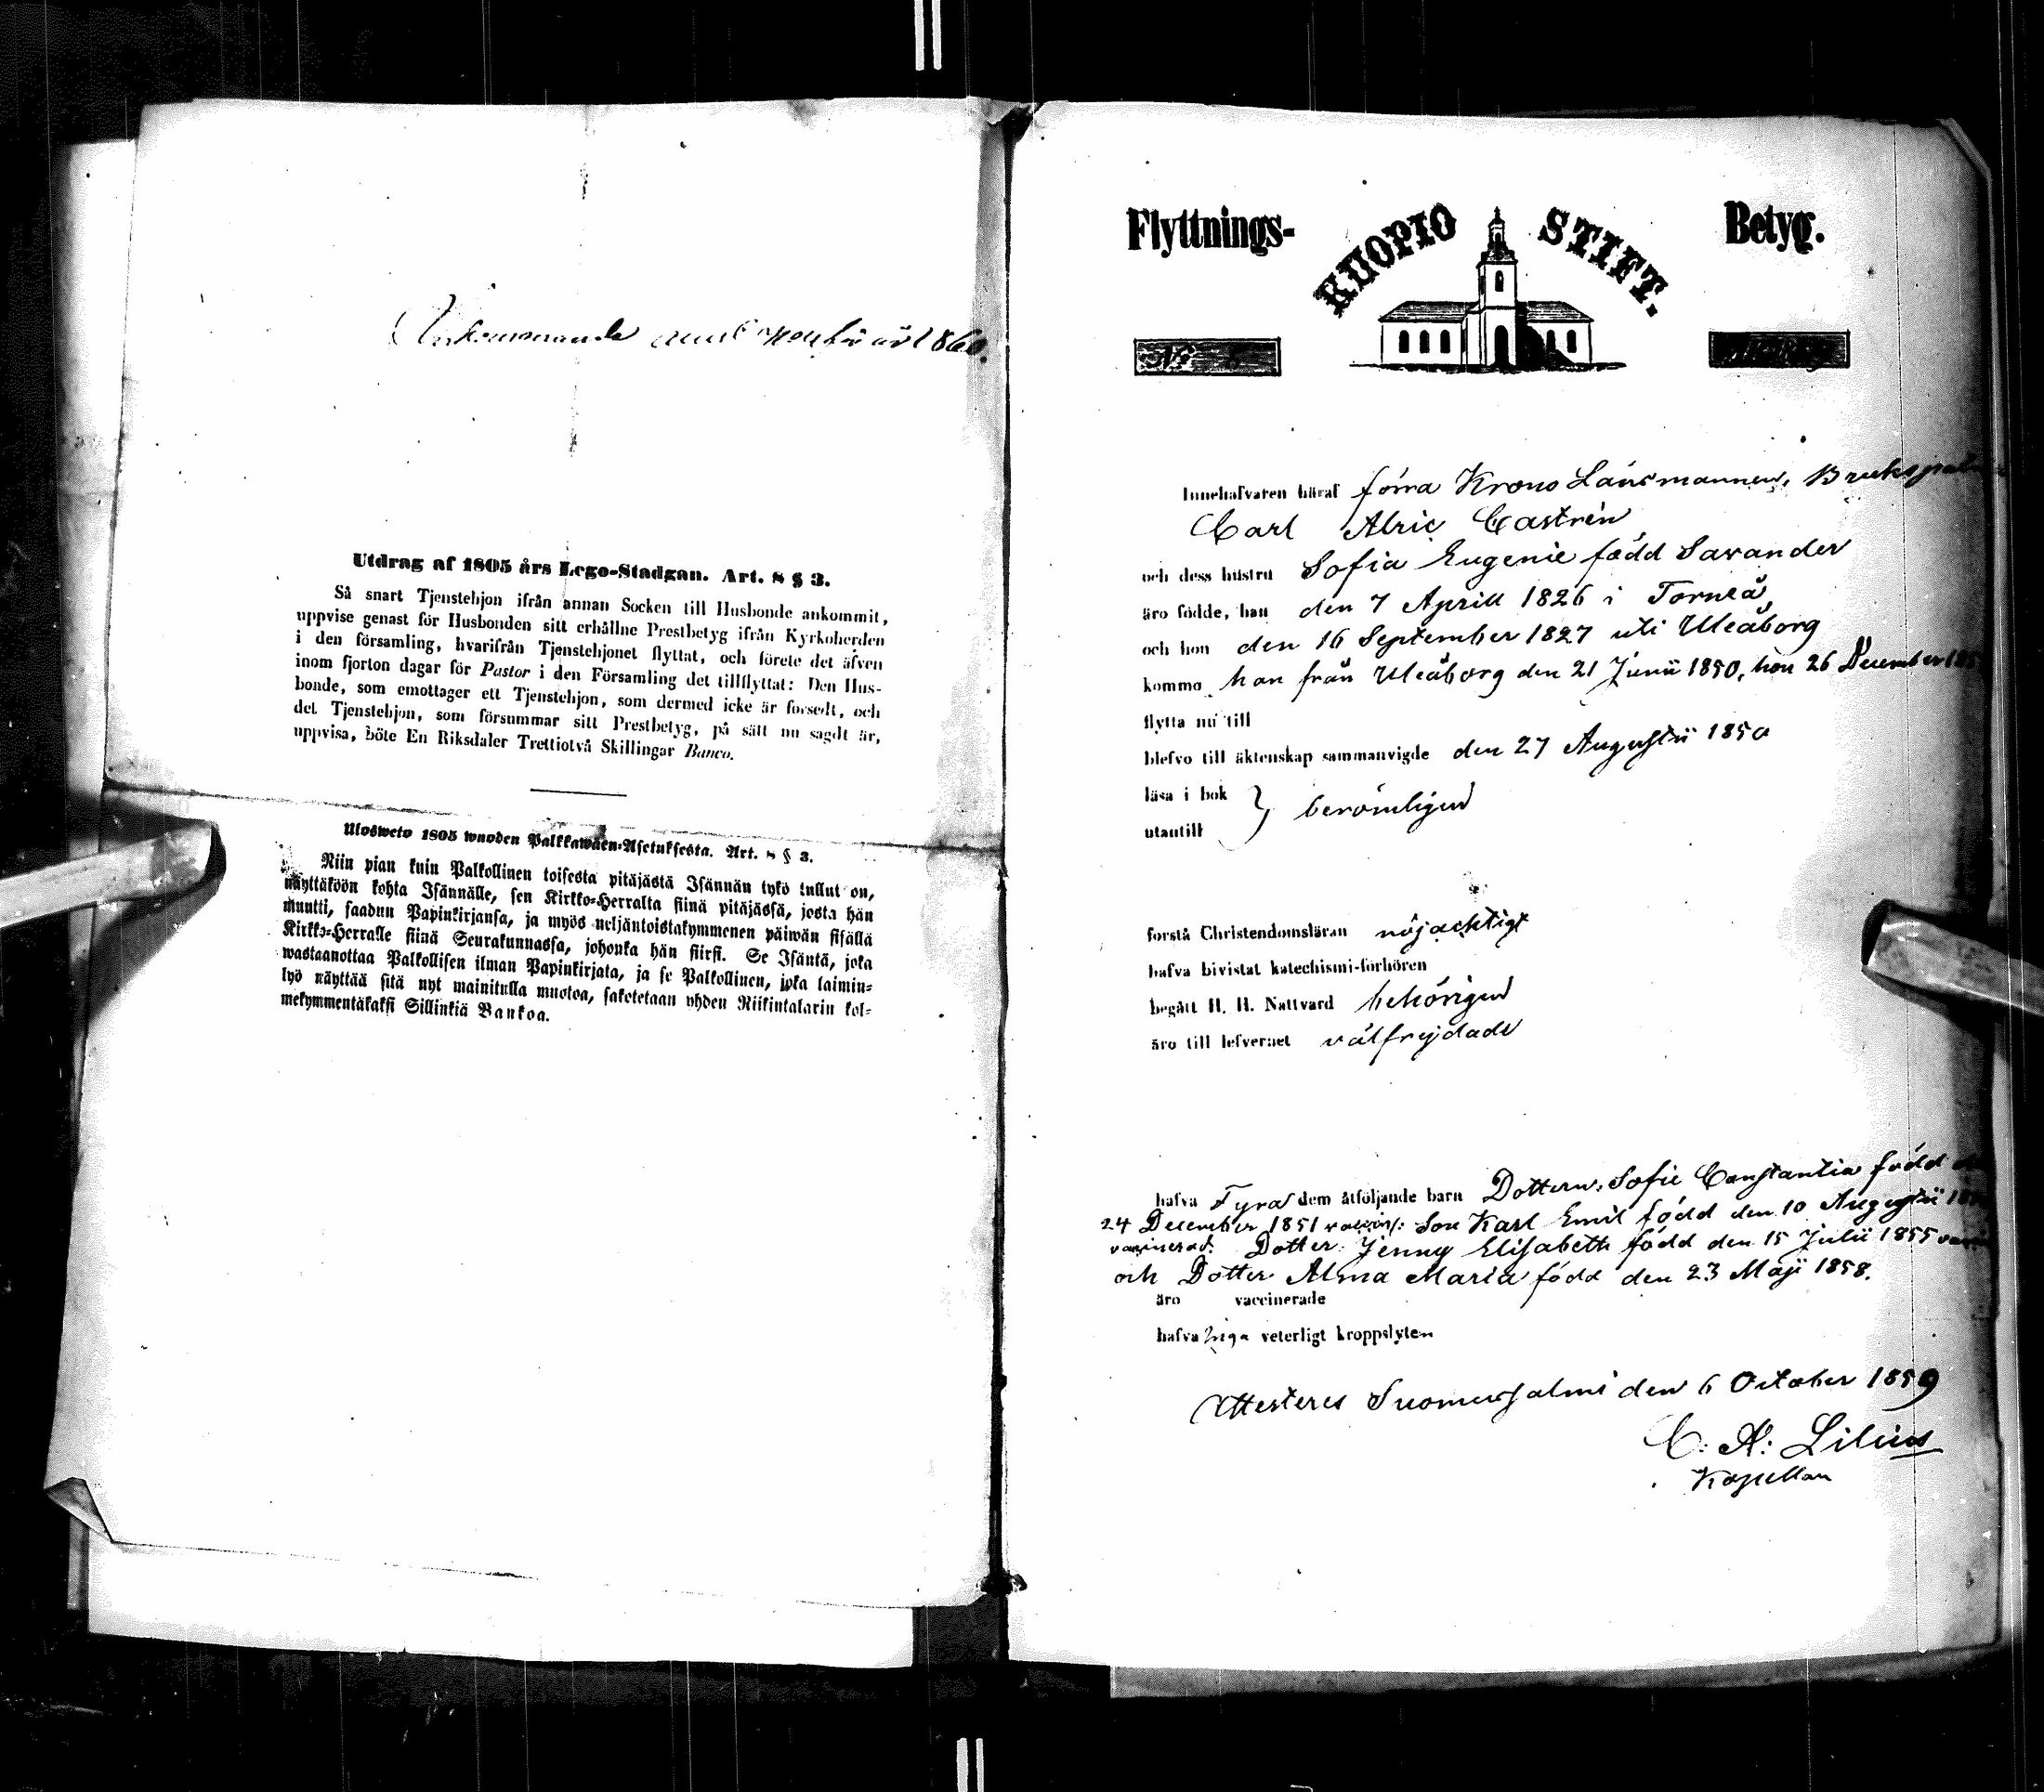 1860.
Utdrag af 1805 års Lego-Stadgan. Art. 8 § 3.
Så snart Tjenstehjon ifrån annan Socken till Husbonde ankommit,
uppvise genast för Husbonden sitt erhållne Prestbetyg ifrån Kyrkoherden
i den församling, hvarifrån Tjenstehjonet flyttat, och förete det äfven
inom fjorton dagar för Pastor i den Församling det tillflyttat: Den Hus-
bonde, som emottager ett Tjenstehjon, som dermed icke är försedt, och
det Tjenstehjon, som försummar sitt Prestbetyg, på sätt nu sagdt är,
uppvisa, böte En Riksdaler Trettiotvå Skillingar Banco.
Ulosweto 1805 wuoden Palkkawäen-Asetuksesta. Art. 8 § 3.
Niin pian kuin Palkollinen toisesta pitäjästä Isännän tykö tullut on,
näyttäköön kohta Isännälle, sen Kirkko-Herralta siinä pitäjässä, josta hän
muutti, saadun Papinkirjansa, ja myös neljäntoistakymmenen päiwän sisällä
Kirkko-Herralle siinä Seurakunnassa, johonka hän siirsi. Se Isäntä, joka
wastaanottaa Palkollisen ilman Papinkirjata, ja se Palkollinen, joka laimin-
lyö näyttää sitä nyt mainitulla muotoa, saketetaan yhden Riikintalarin kol-
mekymmentäkaksi Sillinkiä Bankoa.
Flyttnings- KUOPIO STIFT. Betyg.
N:o 5
Innehafvaren häraf förra Krono Länsmannen,
Carl Alric Castrén
och dess hustru Sofia Eugenie född Savander
äro födde, han den 7 Aprill 1826 i Torneå
och hon den 16 September 1827 uti Uleåborg
komma han från Uleåborg den 21 Junii 1850, hon 26 December
flytta nu till
blefvo till äktenskap sammanvigde den 27 Augustii 1850
läsa i bok } berömligen
utantill
förstå Christendomsläran nöjachtigt
hafva bivistat katechismi-förhören
begått H. H. Nattvard behörigen
äro till lefvernet välfrejdade
hafva Fyra dem åtföljande barn Dottern: Sofie Constantia född
24 December 1851 Son Karl Emil född den 10 Augustii
vaccinerad. Dotter Jenny Elisabeth född den 15 Julii 1855
och Dotter Alma Maria född den 23 Maji 1858.
äro vaccinerade
hafva inga veterligt kroppslyten
Attesteres Suomussalmi den 6 October 1859
C: A: Lilius
Kapellan